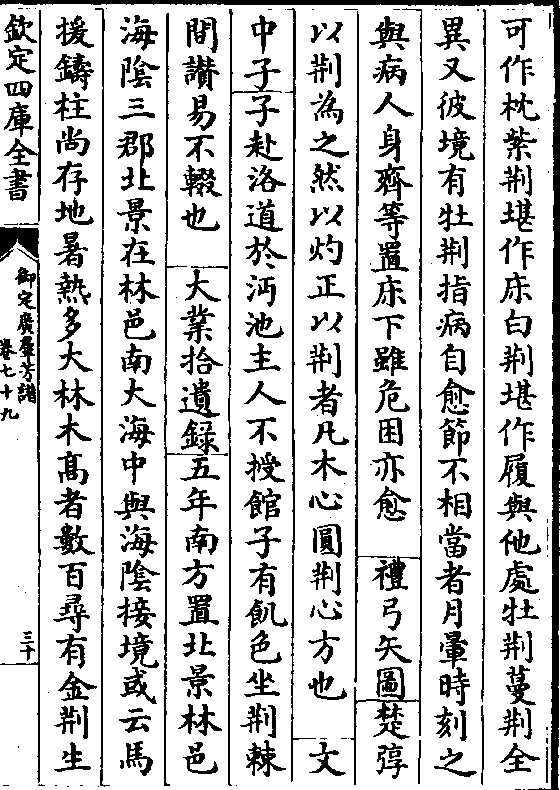 可作枕紫荆堪作床白荆堪作履與他處牡荆蔓荆全
異又彼境有牡荆指病自愈節不相當者月暈時刻之
與病人身齊等置床下雖危困亦愈　禮弓矢圖楚焞
以荆為之然以灼正以荆者凡木心圓荆心方也　文
中子子赴洛道於沔池主人不授館子有飢色坐荆棘
間讃易不輟也　大業拾遺録五年南方置北景林邑
海陰三郡北景在林邑南大海中與海陰接境或云馬
援鑄柱尚存地暑熱多大林木髙者數百尋有金荆生
欽定四庫全書
御定廣羣芳譜
卷七十九
三十